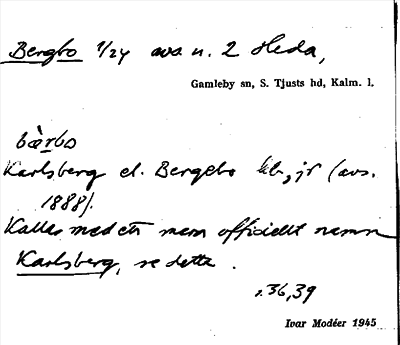 Bergbo 1/24 ava u. 2 Heda,
Gamleby sn, S. Tjusts hd, Kalm. l.
bàrbo
Karlsberg el. Bergebo lb, jr (avs.
1888).
Kallas med ett mera officiellt namn
Karlsberg, se detta.
s. 36, 39
Ivar Modéer 1945